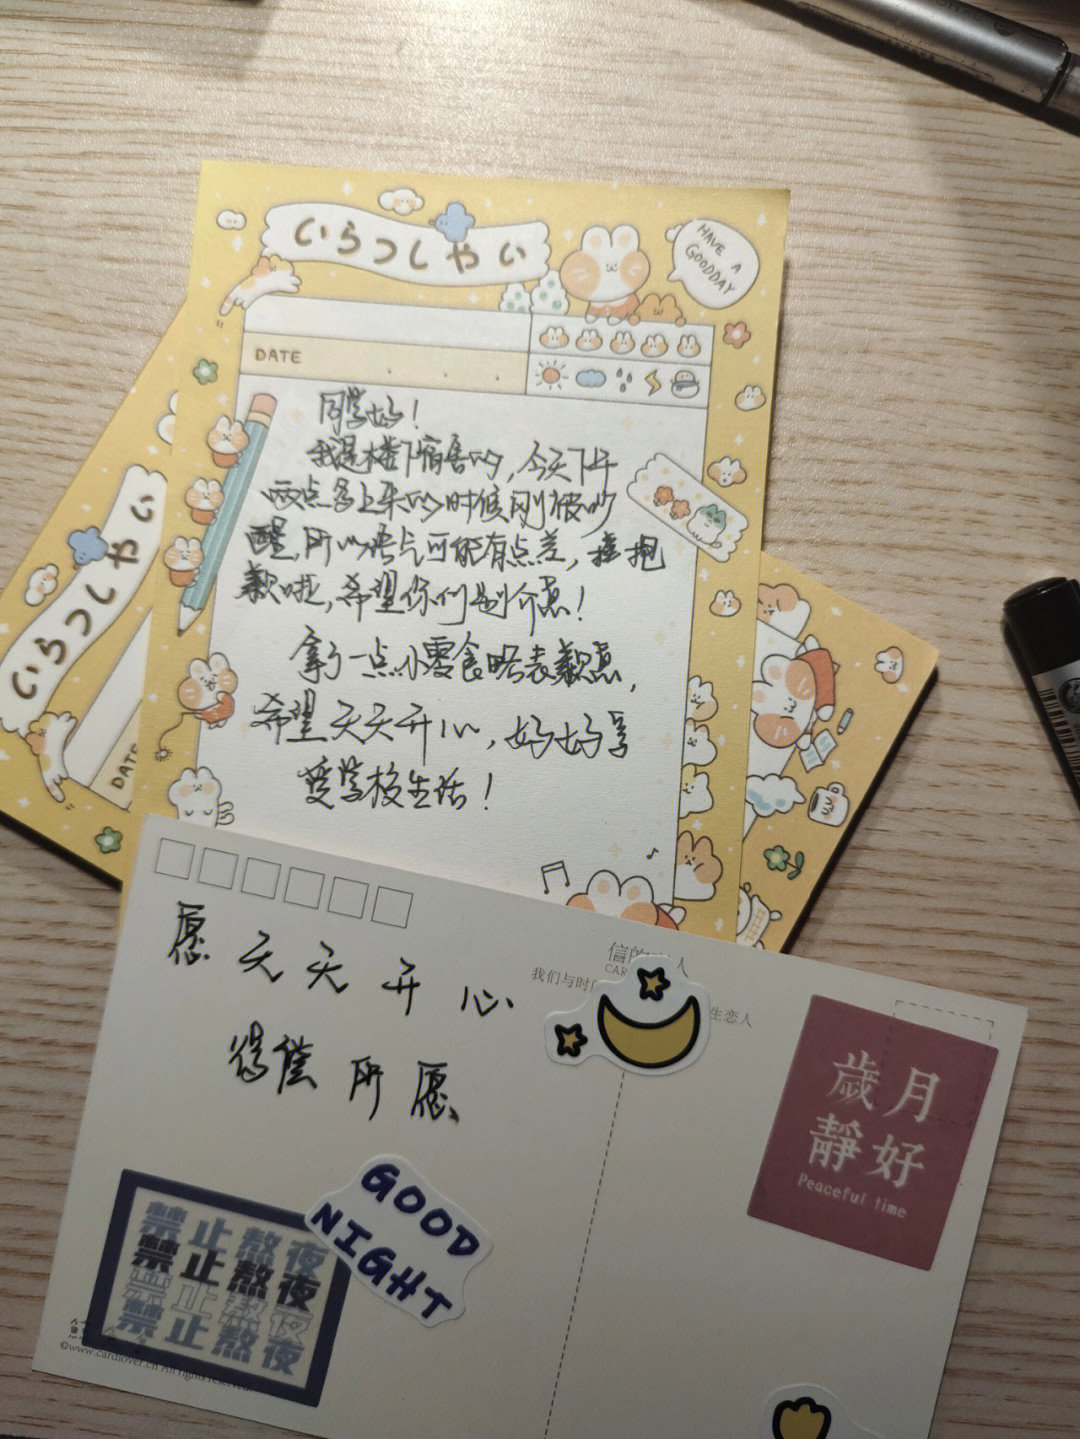 いらっしゃい
HAVE A
GOODDAY
DATE
同学好!
我是楼下宿舍的,今天下午
两点多上来的时候刚被吵
醒,所以语气可能有点差,
抱
歉啦,希望你们别介意!
拿了一点小零食略表歉意,
希望天天开心,好好享
受学校生活!
いらっしゃい
DATE
愿天天开心
得偿所愿
信的
人
CAR
我们与时
生恋人
歲月
靜好
Peaceful time
GOOD
NIGHT
禁止熬夜
禁止熬夜
禁止熬夜
禁止熬夜
©www.cardlover.cn All rights reserved